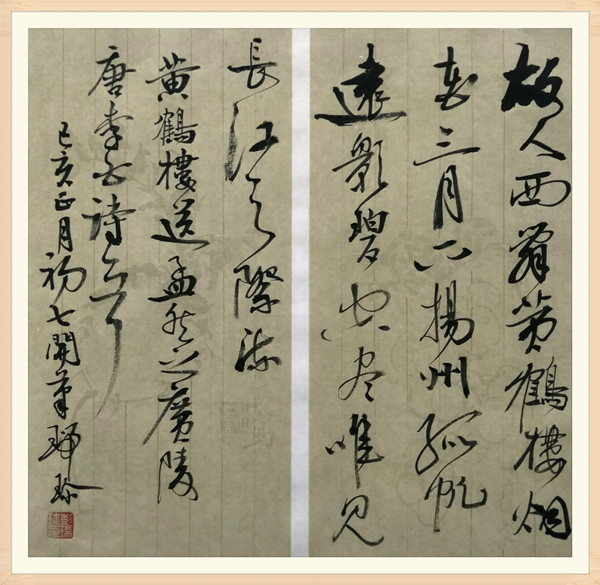 故人西辭黄鶴樓烟
花三月下揚州孤帆
遠影碧空尽唯見
長江天際流
黄鶴樓送孟然之廣陵
唐李白詩一首
己亥正月初七開筆